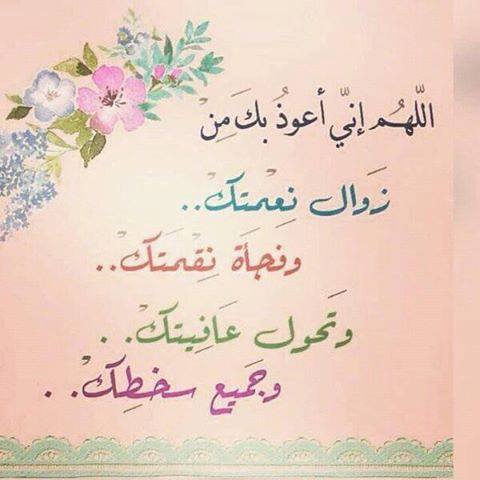 اللّهُم إنّي أعوذُ بكَ مِنْ
زَوَال نِعْمتكْ..
وفجأة نِقْمَتكْ..
وتَحول عَافِيتكْ. .
وجَميع سخطِكْ. .